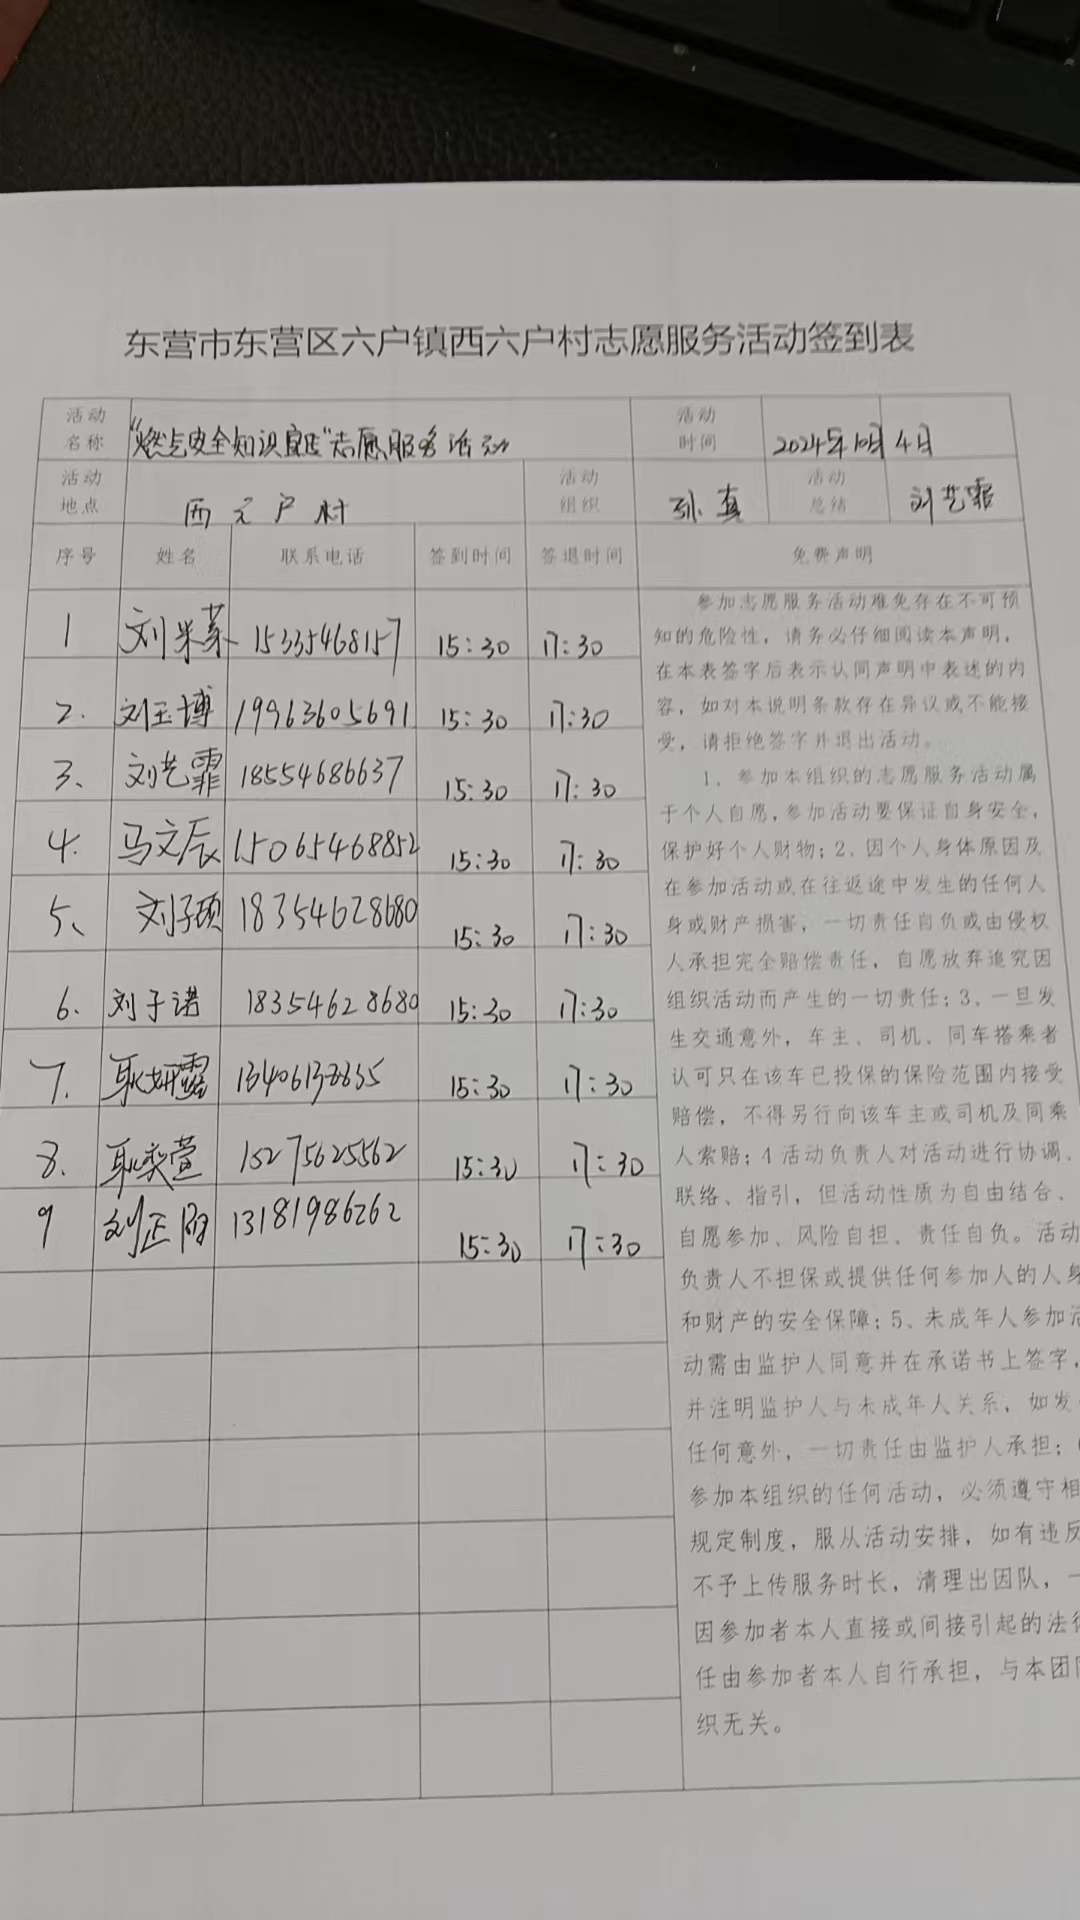 东营市东营区六户镇西六户村志愿服务活动签到表
活动名称 "燃气安全知识宣传"志愿服务活动 活动时间 2024年10月4日
活动地点 西六户村 活动组织 孙真 活动总结 刘艺霏
序号 姓名 联系电话 签到时间 签退时间 免费声明
1 刘米莱 15335468157 15:30 17:30
2. 刘玉博 19963605691 15:30 17:30
3、 刘艺霏 18554686637 15:30 17:30
4. 马文辰 15065468852 15:30 17:30
5、 刘子硕 18354628680 15:30 17:30
6. 刘子诺 18354628680 15:30 17:30
7. 耿妍露 13406138835 15:30 17:30
8. 耿奕萱 15275625562 15:30 17:30
9 刘正阳 13181986262 15:30 17:30
参加志愿服务活动难免存在不可预
知的危险性，请务必仔细阅读本声明，
在本表签字后表示认同声明中表述的内
容，如对本说明条款存在异议或不能接
受，请拒绝签字并退出活动。
1、参加本组织的志愿服务活动属
于个人自愿，参加活动要保证自身安全，
保护好个人财物；2、因个人身体原因及
在参加活动或在往返途中发生的任何人
身或财产损害，一切责任自负或由侵权
人承担完全赔偿责任，自愿放弃追究因
组织活动而产生的一切责任；3、一旦发
生交通意外，车主、司机、同车搭乘者
认可只在该车已投保的保险范围内接受
赔偿，不得另行向该车主或司机及同乘
人索赔；4活动负责人对活动进行协调、
联络、指引，但活动性质为自由结合、
自愿参加、风险自担、责任自负。活动
负责人不担保或提供任何参加人的人身
和财产的安全保障；5、未成年人参加活
动需由监护人同意并在承诺书上签字，
并注明监护人与未成年人关系，如发
任何意外，一切责任由监护人承担；
参加本组织的任何活动，必须遵守相
规定制度，服从活动安排，如有违反
不予上传服务时长，清理出因队，一
因参加者本人直接或间接引起的法律
任由参加者本人自行承担，与本团队
织无关。